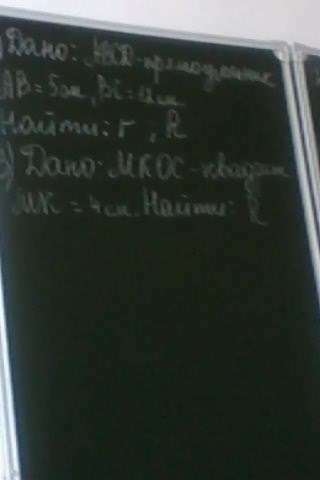 Дано: ABCD-прямоугольник
AB = 5см, BC = 12см
Найти: r, R
Дано: МКОС-квадрат
МК = 4см. Найти: R